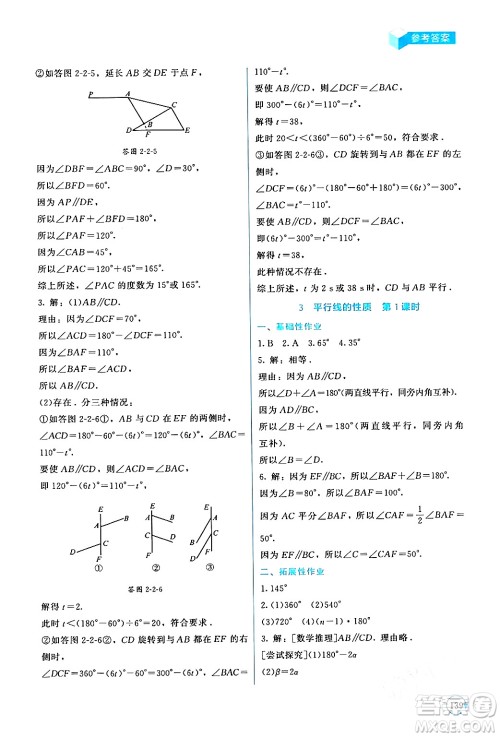 参考答案
②如答图 2-2-5，延长 AB 交 DE 于点 F.
P A C B D F E
答图 2-2-5
因为∠DBF=∠ABC=90°，
所以∠BFD=60°.
因为 AP∥DE，
所以∠PAF+∠BFD=180°.
所以∠PAF=120°.
因为∠CAB=45°，
所以∠PAC=120°+45°=165°.
综上所述，∠PAC 的度数为 15°或 165°.
3. 解：(1)AB∥CD.
理由：因为∠BAF=110°，
所以∠BAE=70°.
因为∠DCF=70°，
所以∠BAE=∠DCF.
所以 AB∥CD.
(2)存在. 分三种情况：
①如答图 2-2-6①，AB 与 CD 在 EF 的两侧时，
∠ACD=180°-60°-(6t)°=120°-(6t)°，∠BAC=
110°-t°.
要使 AB∥CD，则∠ACD=∠BAC，
即 120°-(6t)°=110°-t°.
E A B D C F
①
E A B C D F
②
E B A D C F
③
答图 2-2-6
解得 t=2.
此时(180°-60°)÷6°=20.
②如答图 2-2-6②，CD 旋转到与 AB 都在 EF 的右
侧时，
∠DCF=360°-(6t)°-60°=300°-(6t)°，∠BAC=
110°-t°.
要使 AB∥CD，则∠DCF=∠BAC，
即 300°-(6t)°=110°-t°.
解得 t=38，
此时 20<t<(360°-60°)÷6°=50.
③如答图 2-2-6③，CD 旋转到与 AB 都在 EF 的左
侧时，
∠DCF=(6t)°-(180°-60°+180°)=(6t)°-300°，
∠BAC=t°-110°.
要使 AB∥CD，则∠DCF=∠BAC，
即(6t)°-300°=t°-110°.
解得 t=38，
此种情况不存在.
综上所述，t 为 2 s 或 38 s 时，CD 与 AB 平行.
3 平行线的性质 第 1 课时
一、基础性作业
1. B 2. A 3. 65° 4. 35°
5. 解：相等.
理由：因为 AB∥CD，
所以∠D+∠A=180°(两直线平行，同旁内角互补).
因为 AD∥BC，
所以∠B+∠A=180°(两直线平行，同旁内角互补).
所以∠B=∠D.
6. 解：因为 EF∥BC，所以∠BAF=180°-∠B=100°.
因为 AC 平分∠BAF，所以∠CAF=1/2∠BAF=
50°.
因为 EF∥BC，所以∠C=∠CAF=50°.
二、拓展性作业
1. 145°
2. (1)360° (2)540°
(3)720° (4)(n-1)·180°
3. 解：[数学推理]AB∥CD. 理由略.
[尝试探究](1)180°-2α
(2)β=2α
139